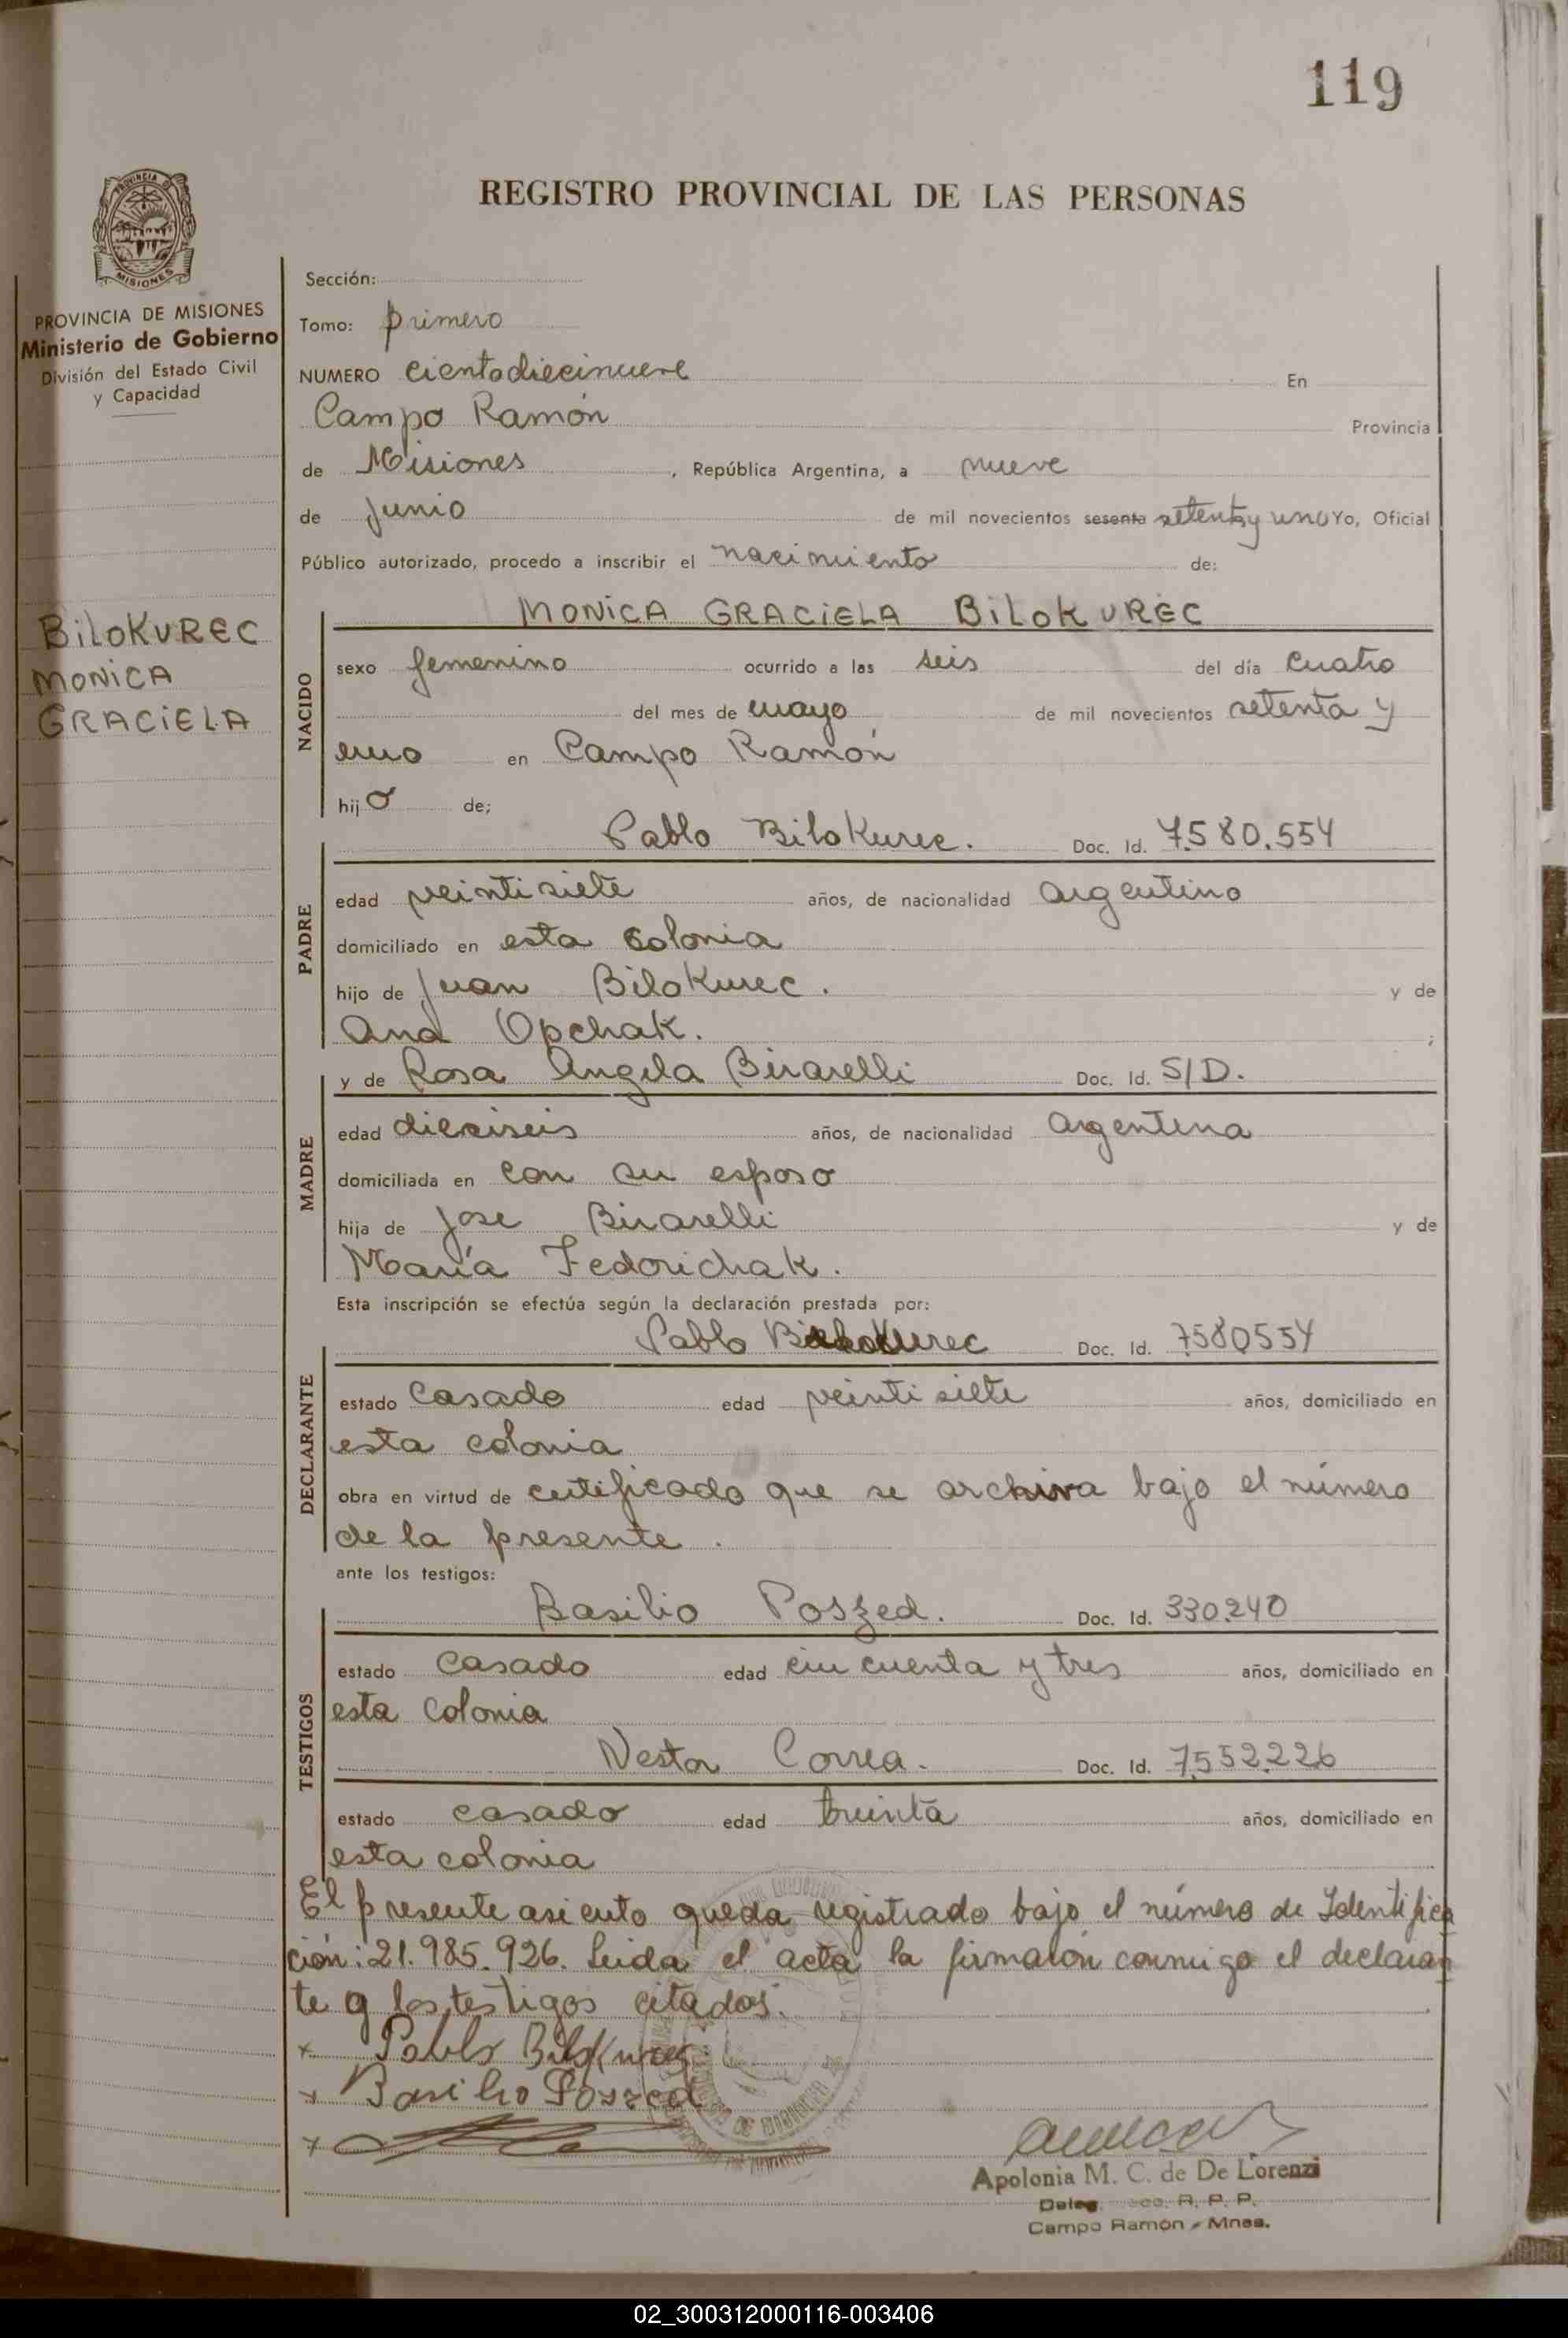 119
REGISTRO PROVINCIAL DE LAS PERSONAS
PROVINCIA DE MISIONES
MISIONES
PROVINCIA DE MISIONES
Ministerio de Gobierno
División del Estado Civil
y Capacidad
BiLOKUREC
MONiCA
GRACiELA
Sección:
Tomo: primero
NUMERO cientodiecinueve En
Campo Ramón Provincia
de Misiones, República Argentina, a nueve
de junio de mil novecientos sesenta setenta y uno Yo, Oficial
Público autorizado, procedo a inscribir el nacimiento de:
MONiCA GRACiELA BiLOKUREC
NACIDO
sexo femenino ocurrido a las seis del día cuatro
del mes de mayo de mil novecientos setenta y
uno en Campo Ramón
hij o de;
Pablo BiloKurec. Doc. Id. 7.580.554
PADRE
edad veintisiete años, de nacionalidad argentino
domiciliado en esta colonia
hijo de Juan BiloKurec. y de
Ana Opchak. ;
y de Rosa Angela Birarelli Doc. Id. S/D.
MADRE
edad dieciseis años, de nacionalidad argentina
domiciliada en con su esposo
hija de Jose Birarelli y de
María Fedorichak.
Esta inscripción se efectúa según la declaración prestada por:
Pablo BiloKurec Doc. Id. 7.580554
DECLARANTE
estado casado edad veintisiete años, domiciliado en
esta colonia
obra en virtud de certificado que se archiva bajo el número
de la presente.
ante los testigos:
Basilio Poszed. Doc. Id. 330.240
TESTIGOS
estado casado edad cincuenta y tres años, domiciliado en
esta colonia
Nestor Correa. Doc. Id. 7.552.226
estado casado edad treinta años, domiciliado en
esta colonia
El presente asiento queda registrado bajo el número de Identifica
ción: 21.985.926. Leida el acta la firmaron conmigo el declaran
te y los testigos citados.
x Pablo BiloKurec
x Basilio Poszed
x
Apolonia M. C. de De Lorenzi
R. P. P.
Campo Ramón - Mnes.
02_300312000116-003406